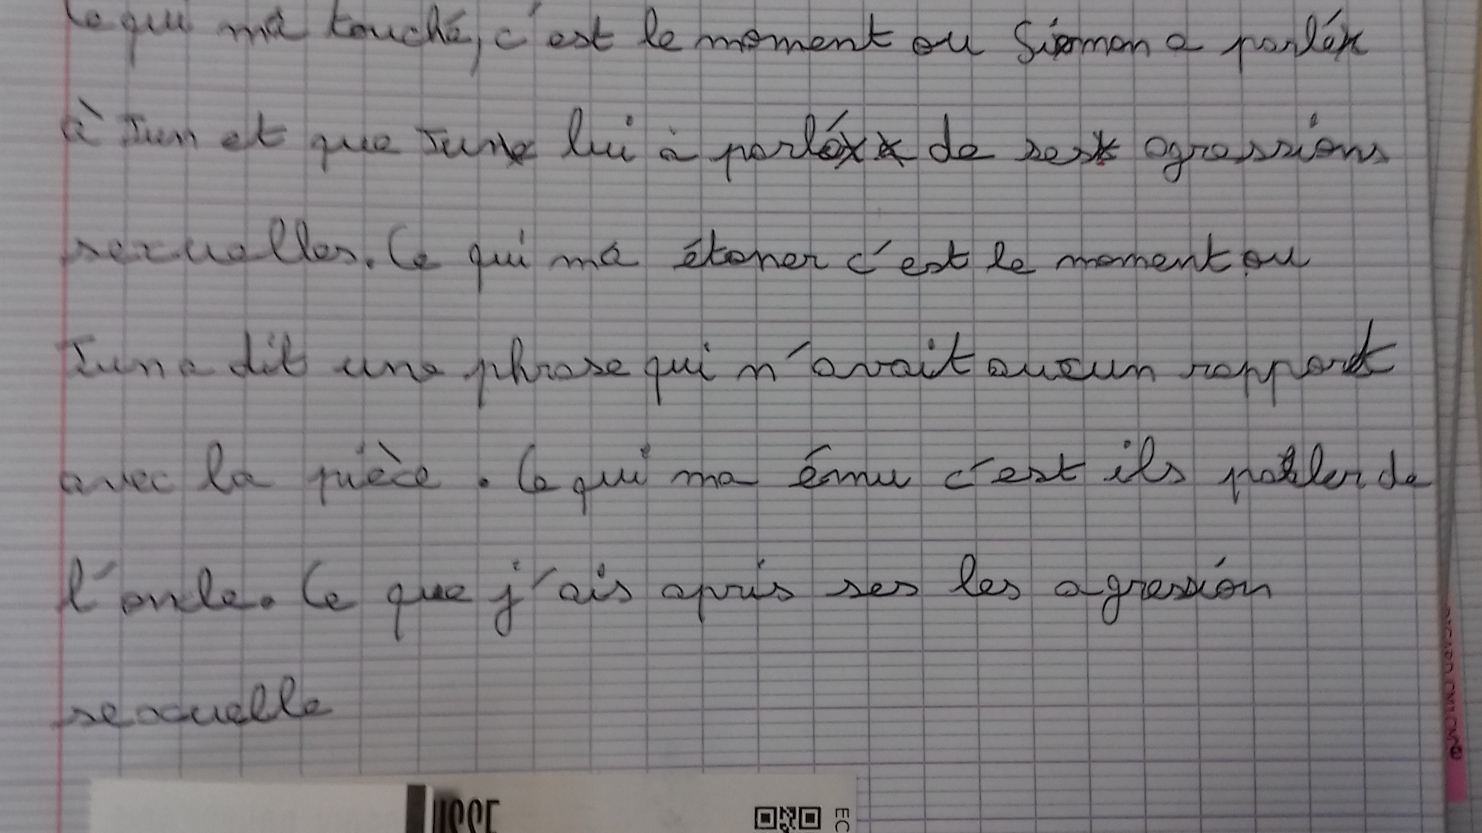 Ce qui ma touché, c'est le moment ou Simon a parlé
à Jun et que June lui à parlé de ses agressions
sexuelles. Ce qui ma étoner c'est le moment ou
Jun a dit une phrase qui n'avait aucun rapport
avec la pièce. Ce qui ma ému c'est ils parler de
l'oncle. Ce que j'ais apris ses les agression
sexuelle
EC